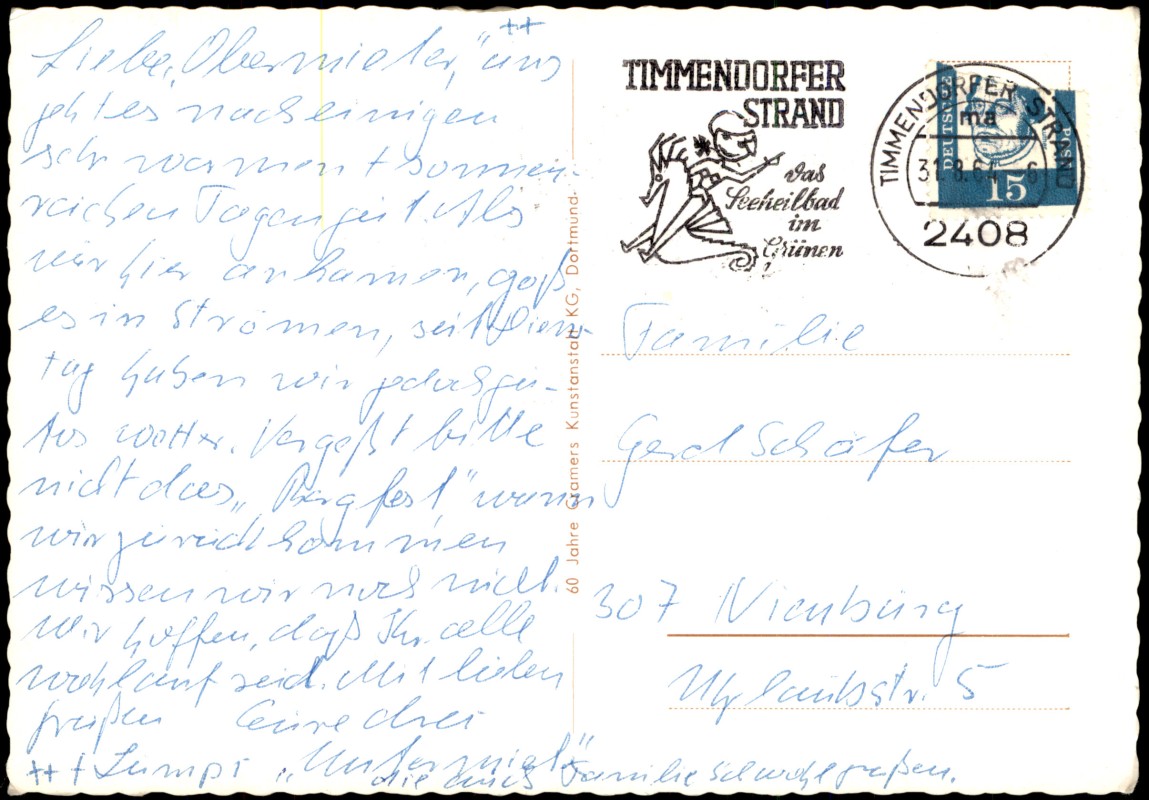 ++
Liebe „Obermieter,“ uns
geht es nach einigen
sehr warmen + sonnen-
reichen Tagen gut. Als
wir hier ankamen, goß
es in Strömen, seit Diens-
tag haben wir jedoch gu-
tes Wetter. Vergeßt bitte
nicht das „Bergfest“ wann
wir zurückkommen
wissen wir noch nicht.
Wir hoffen, daß Ihr alle
wohlauf seid. Mit lieben
Grüßen Eure drei
„Untermiet“
++ + Lumpi die auch Familie Schwohl grüßen.
60 Jahre Cramers Kunstanstalt KG, Dortmund
TIMMENDORFER
STRAND
das
Seeheilbad
im
Grünen
TIMMENDORFER STRAND
ma
31.8.64 - 6
2408
DEUTSCHE POST
15
Familie
Gerd Schäfer
307 Nienburg
Uhlaubstr. 5